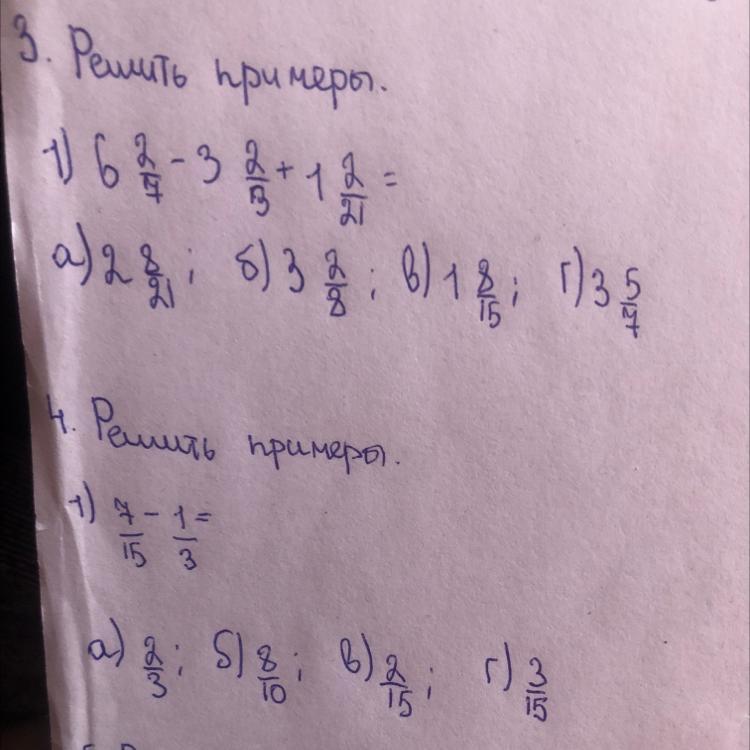 3. Решить примеры.
1) 6 2/7 - 3 2/3 + 1 2/21 =
а) 2 8/21; б) 3 2/8; в) 1 8/15; г) 3 5/7
4. Решить примеры.
1) 7/15 - 1/3 =
а) 2/3; б) 8/10; в) 2/15; г) 3/15